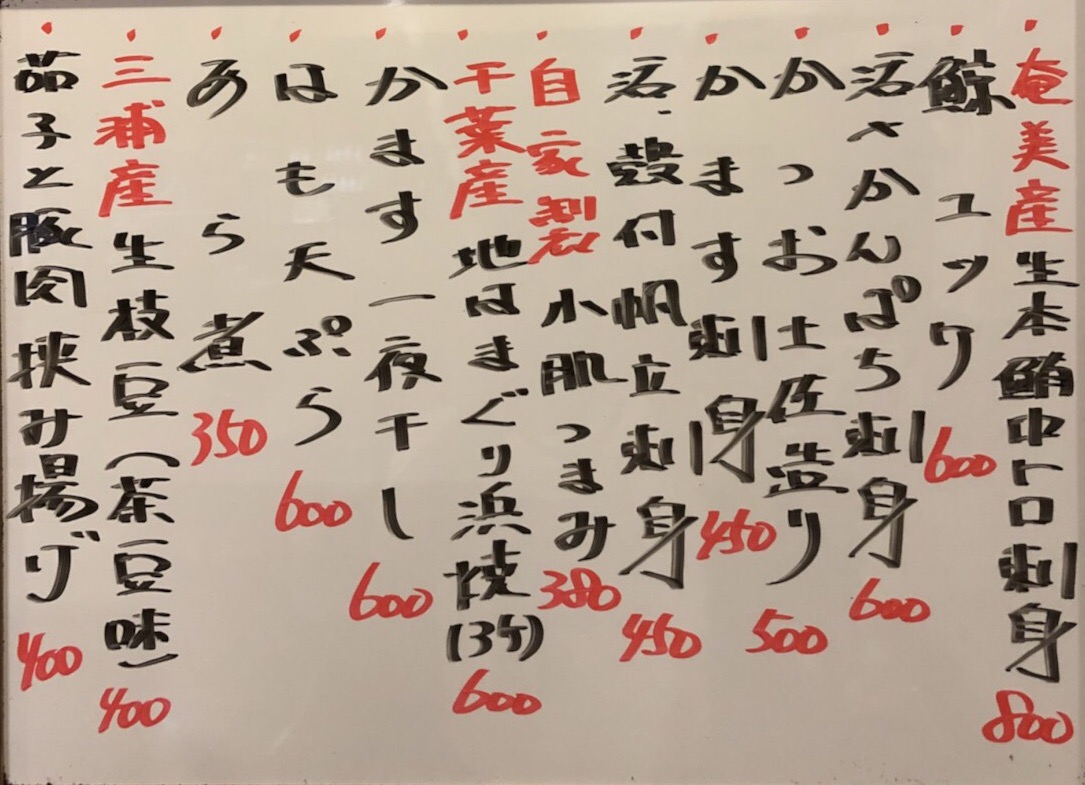 奄美産生本鮪中トロ刺身 800
鯨ユッケ 600
活〆かんぱち刺身 600
かつお土佐造り 500
かます刺身 450
活、殻付帆立刺身 450
自家製小肌つまみ 380
千葉産地はまぐり浜焼(3ケ) 600
かます一夜干し 600
はも天ぷら 600
あら煮 350
三浦産生枝豆(茶豆味) 400
茄子と豚肉挟み揚げ 400